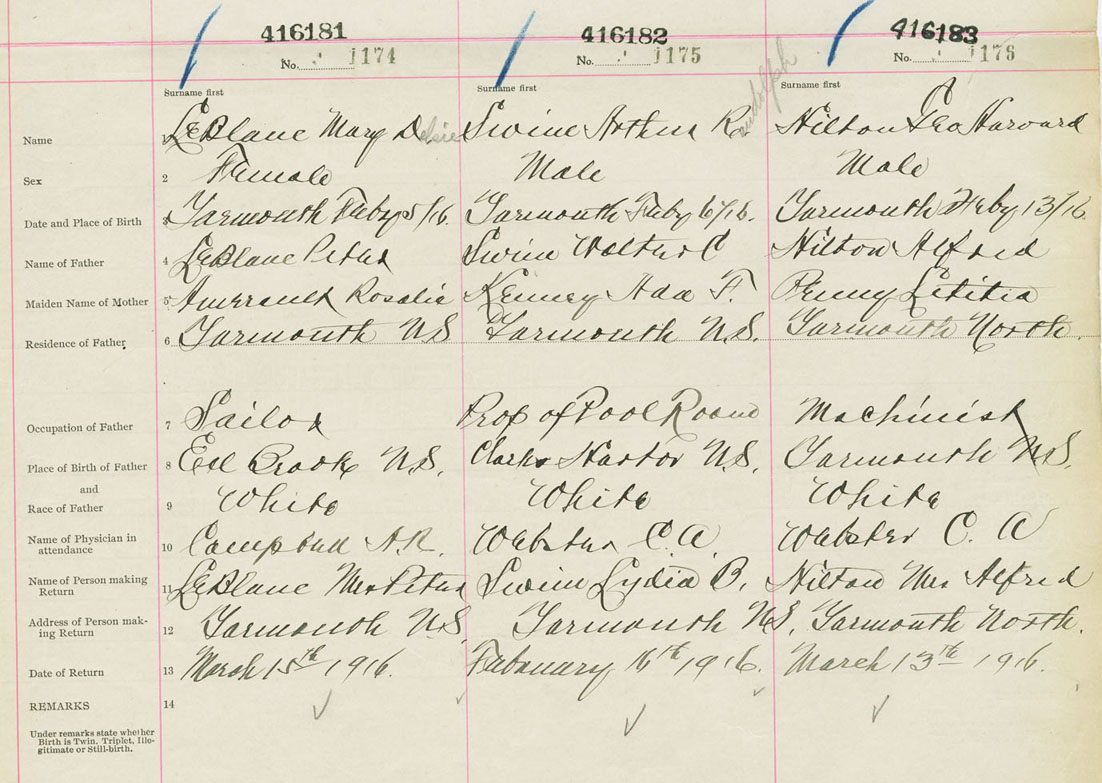 416181 416182 416183
No. 1174 No. 1175 No. 1176
Surname first Surname first Surname first
Name 1 LeBlanc Mary D Swim Arthur Randolph Hilton Leo Harvard
Sex 2 Female Male Male
Date and Place of Birth 3 Yarmouth Feby 5/16. Yarmouth Feby 6/16. Yarmouth Feby 13/16.
Name of Father 4 LeBlanc Peter Swim Walter C Hilton Alfred
Maiden Name of Mother 5 Amerault Rosalie Kenney Ada F. Penny Letitia
Residence of Father 6 Yarmouth N.S Yarmouth N.S. Yarmouth North.
Occupation of Father 7 Sailor Prop of Pool Room Machinist
Place of Birth of Father 8 Eel Brook N.S. Clarks Harbor N.S. Yarmouth N.S.
and
Race of Father 9 White White White
Name of Physician in
attendance 10 Campbell A.R. Webster C.A. Webster C. A
Name of Person making
Return 11 LeBlanc Mrs Peter Swim Lydia B. Hilton Mrs Alfred
Address of Person mak-
ing Return 12 Yarmouth N.S Yarmouth N.S. Yarmouth North.
Date of Return 13 March 15th 1916. Febuary 16th 1916. March 13th 1916.
REMARKS 14
Under remarks state whether
Birth is Twin, Triplet, Ille-
gitimate or Still-birth.